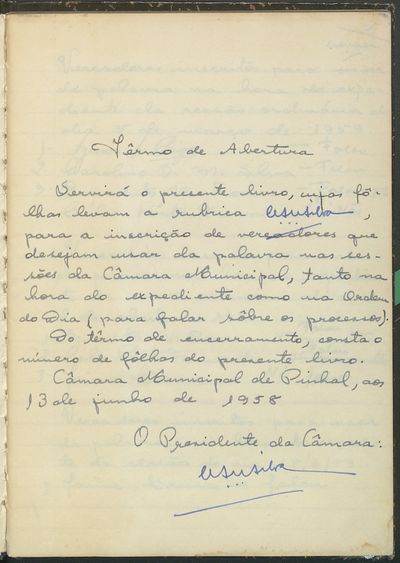 Têrmo de Abertura
Servirá o presente livro, cujas fô-
lhas levam a rubrica ,
para a inscrição de vereadores que
desejam usar da palavra nas ses-
sões da Câmara Municipal, tanto na
hora do expediente como na Ordem
do Dia (para falar sôbre os processos).
Do têrmo de encerramento, consta o
número de fôlhas do presente livro.
Câmara Municipal de Pinhal, aos
13 de junho de 1958
O Presidente da Câmara: